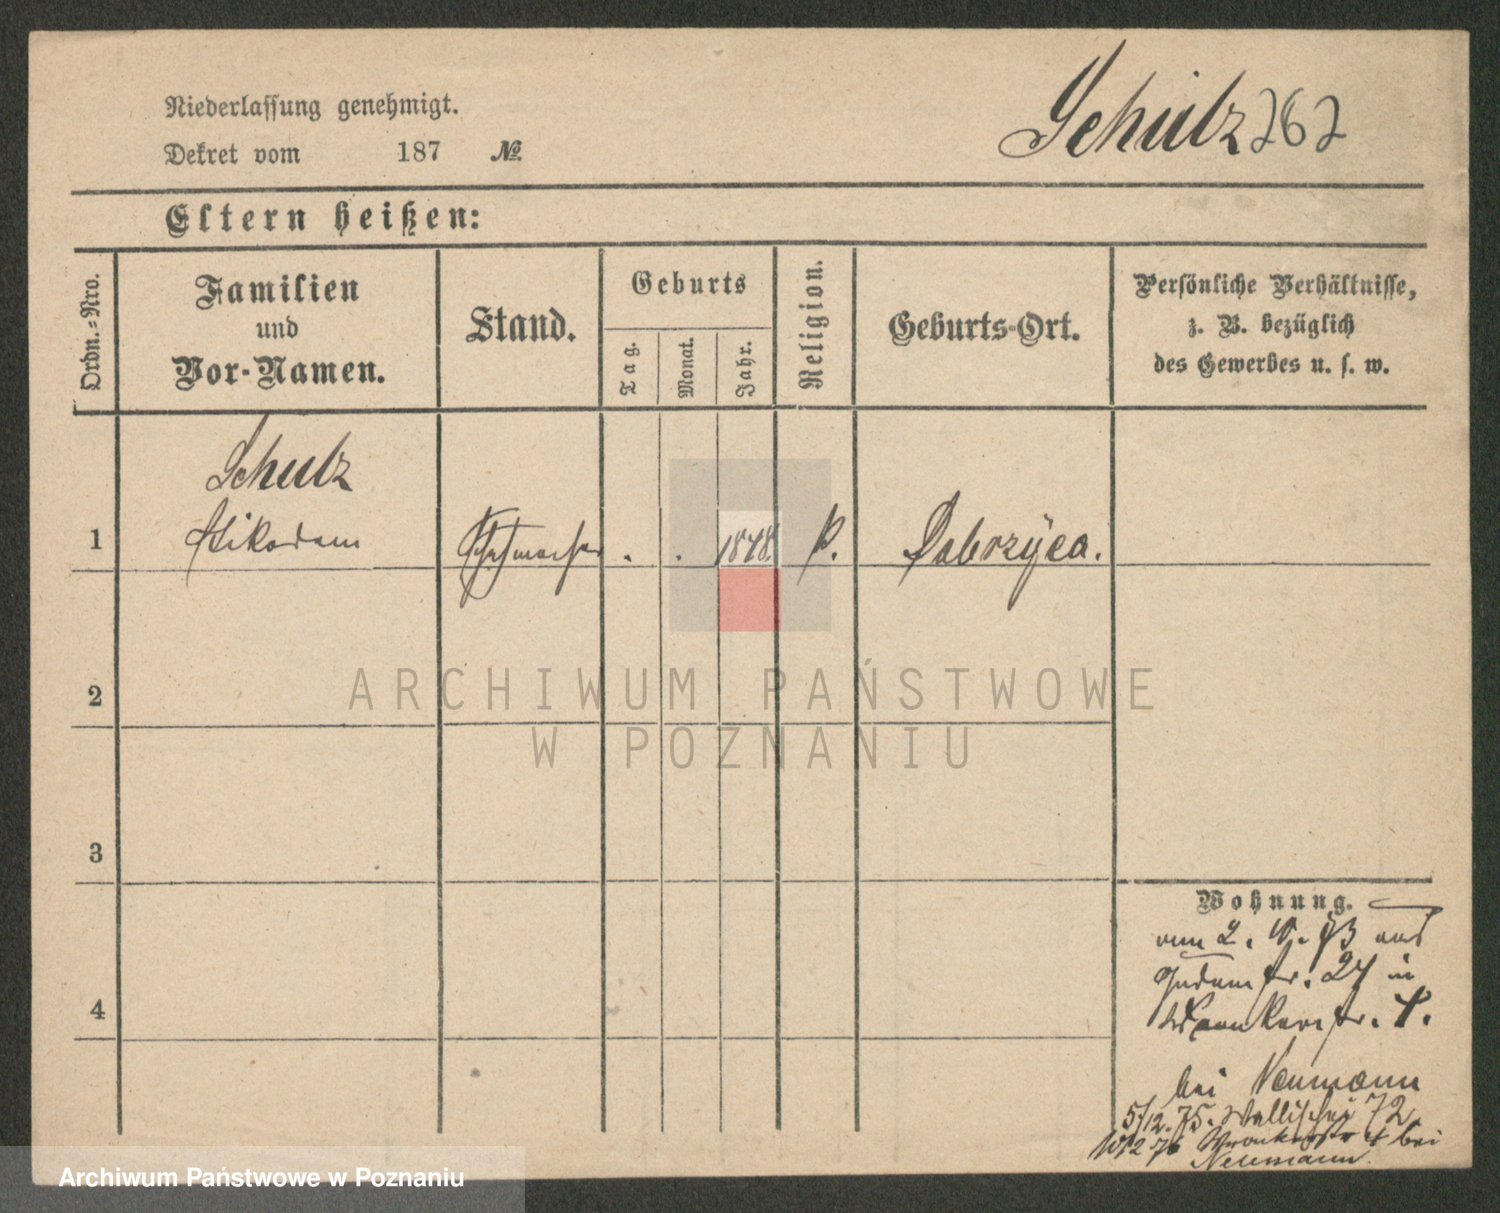 Schulz 262
Niederlassung genehmigt.
Dekret vom 187 №
Eltern heißen:
Ordn.=Nro.
Familien
und
Vor-Namen.
Stand.
Geburts
Tag.
Monat.
Jahr.
Religion.
Geburts-Ort.
Persönliche Verhältnisse,
z. B. bezüglich
des Gewerbes u. s. w.
Schulz
1 Nikodem . . 1848. k. Dobrzyca.
ARCHIWUM PAŃSTWOWE
W POZNANIU
2
3
4
Wohnung.
vom 2. 73 aus
Judenstr. 24 in
Wronkerstr. 4.
bei Neumann
5/12. 75. Wallischei 72
76 Wronkerstr 4 bei
Neumann.
Archiwum Państwowe w Poznaniu